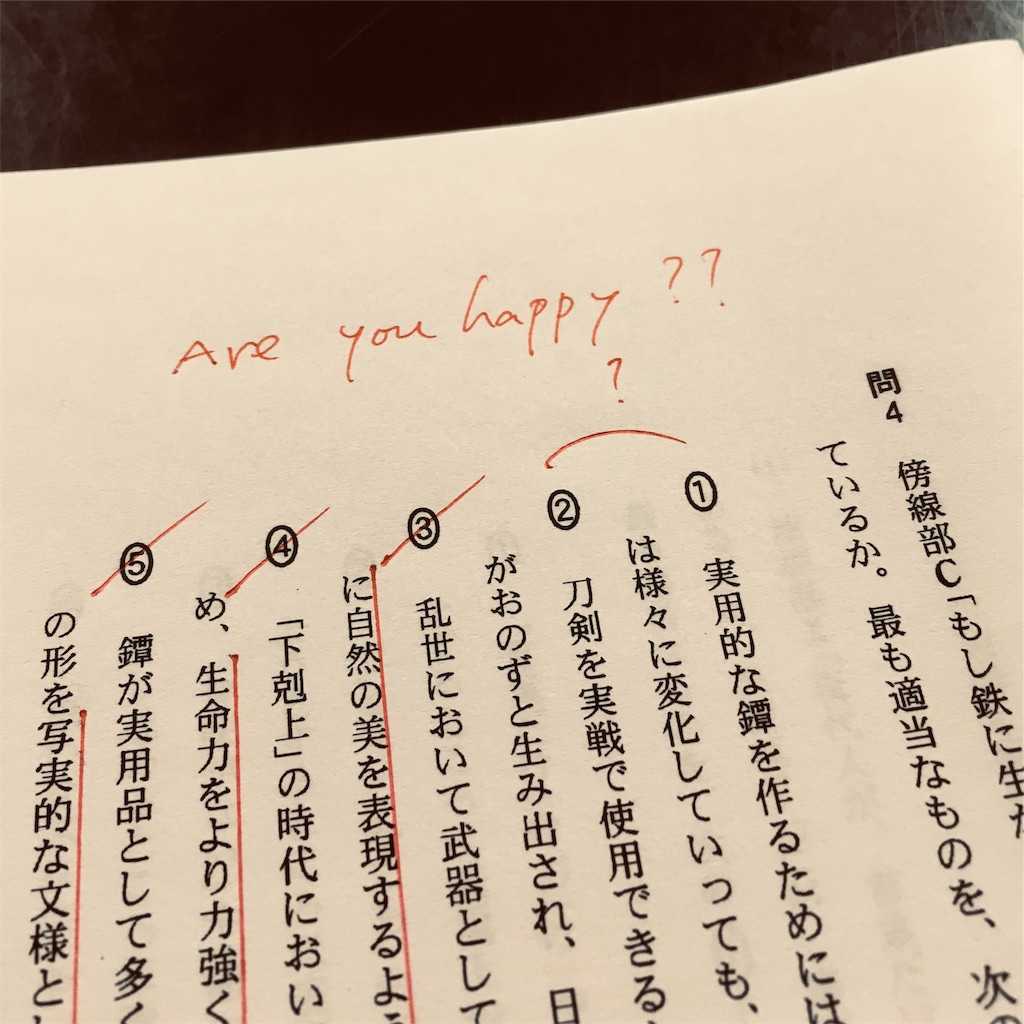 Are you happy ??
?
問4 傍線部C「もし鉄に生
ているか。最も適当なものを、次の
① 実用的な鐔を作るためには
は様々に変化していっても、
② 刀剣を実戦で使用できる
がおのずと生み出され、日
③ 乱世において武器として
に自然の美を表現するよ
④ 「下剋上」の時代におい
め、生命力をより力強く
⑤ 鐔が実用品として多く
の形を写実的な文様と